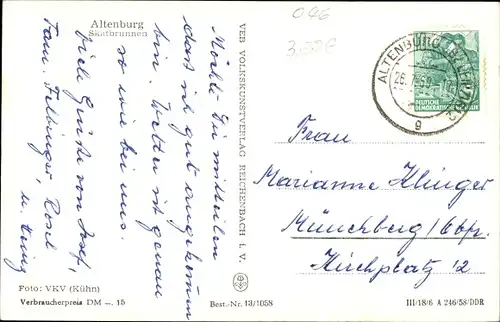 Altenburg
Skatbrunnen
Möchte Dir mitteilen
dass ich gut angekommen
bin. Wetter ist genau
so wie bei uns.
Viele Grüsse von Josef,
Fam. Felbinger, Rosel
u. Heinz
Foto: VKV (Kühn)
Verbraucherpreis DM —. 15
VEB VOLKSKUNSTVERLAG REICHENBACH i. V.
Best.-Nr. 13/1058
046
ALTENBURG
g
DEUTSCHE
DEMOKRATISCHE
Frau
Marianne Klinger
Müncheberg/Gbf.
Kirchplatz 2
III/18/6 A 246/58/DDR